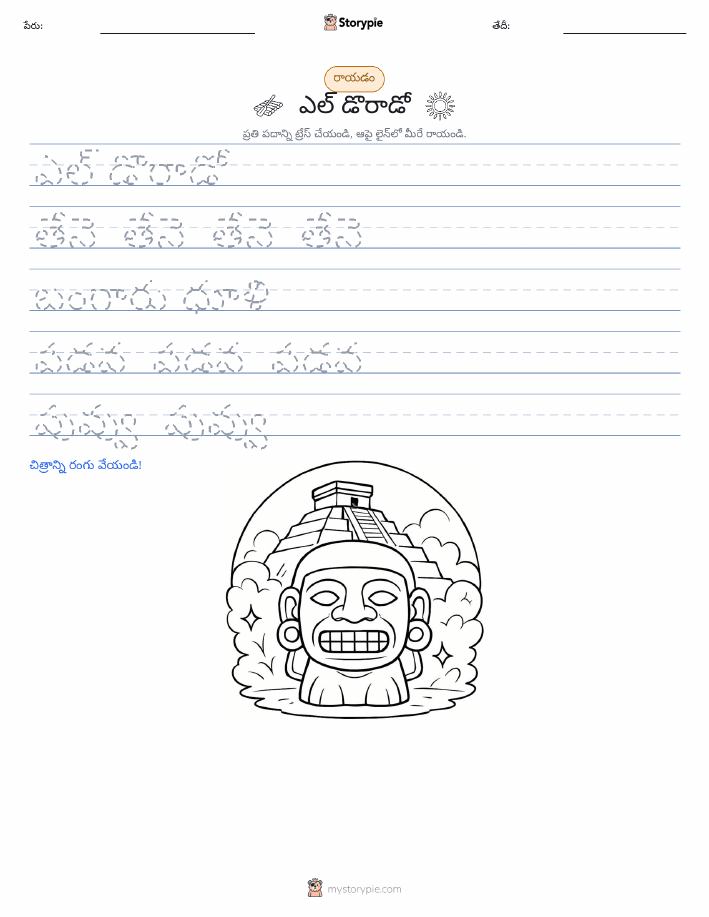 పేరు:
Storypie
తేదీ:
రాయడం
ఎల్ డొరాడో
ప్రతి పదాన్ని ట్రేస్ చేయండి, ఆపై లైన్‌లో మీరే రాయండి.
ఎల్ డొరాడో
తేనె తేనె తేనె తేనె
బంగారు ధూళి
పడవ పడవ పడవ
పుష్పు పుష్పు
చిత్రాన్ని రంగు వేయండి!
mystorypie.com